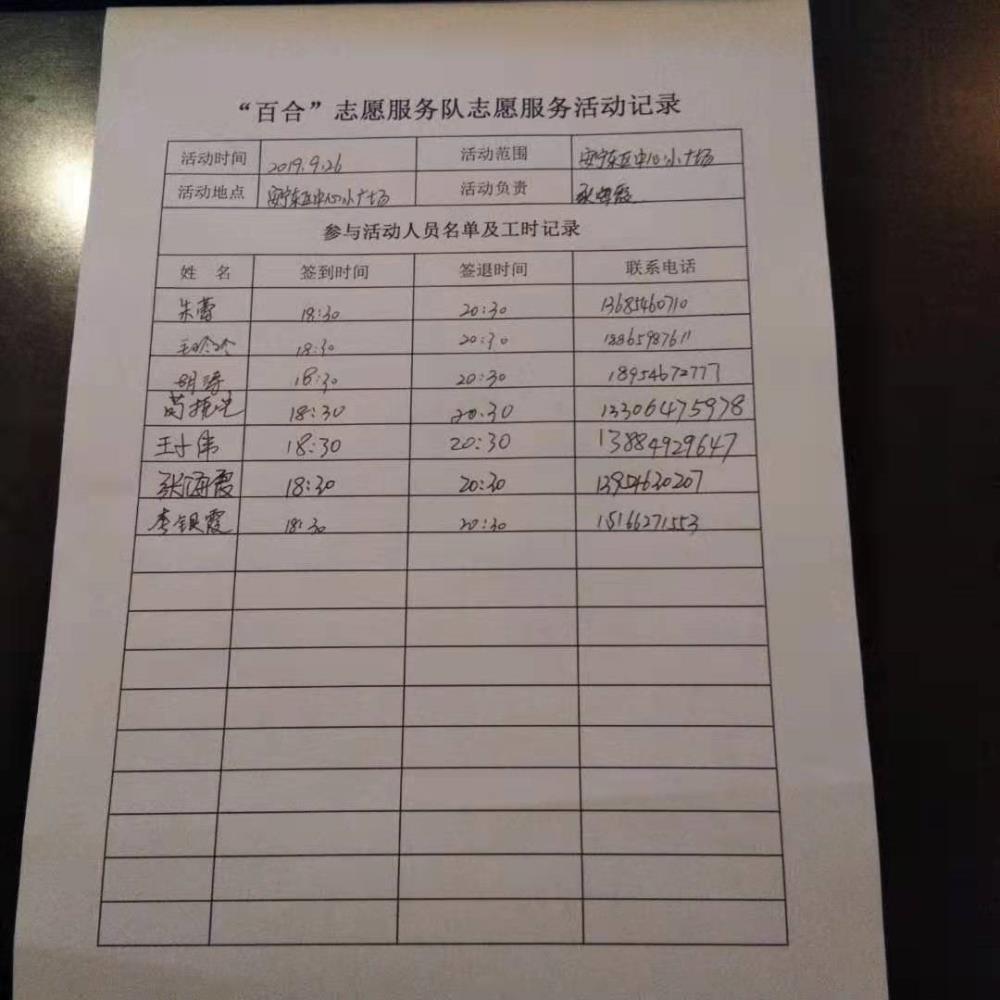 “百合”志愿服务队志愿服务活动记录
活动时间 2019.9.26 活动范围 安宁东区中心小广场
活动地点 安宁东区中心小广场 活动负责
参与活动人员名单及工时记录
姓 名 签到时间 签退时间 联系电话
朱蕾 18:30 20:30 13685460710
18:30 20:30 18865987611
胡涛 18:30 20:30 18954672777
18:30 20:30 13306475978
王小伟 18:30 20:30 13884929647
张海霞 18:30 20:30 13954630207
李银霞 18:30 20:30 15166271553